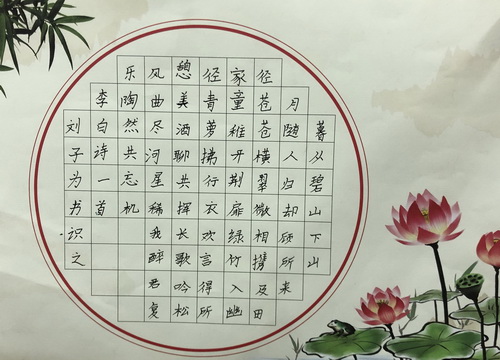 暮从碧山下山
月随人归却顾所来
径苍苍横翠微相携及田
家童稚开荆扉绿竹入幽
径青萝拂行衣欢言得所
憩美酒聊共挥长歌吟松
风曲尽河星稀我醉君复
乐陶然共忘机
李白诗一首
刘子为书识之